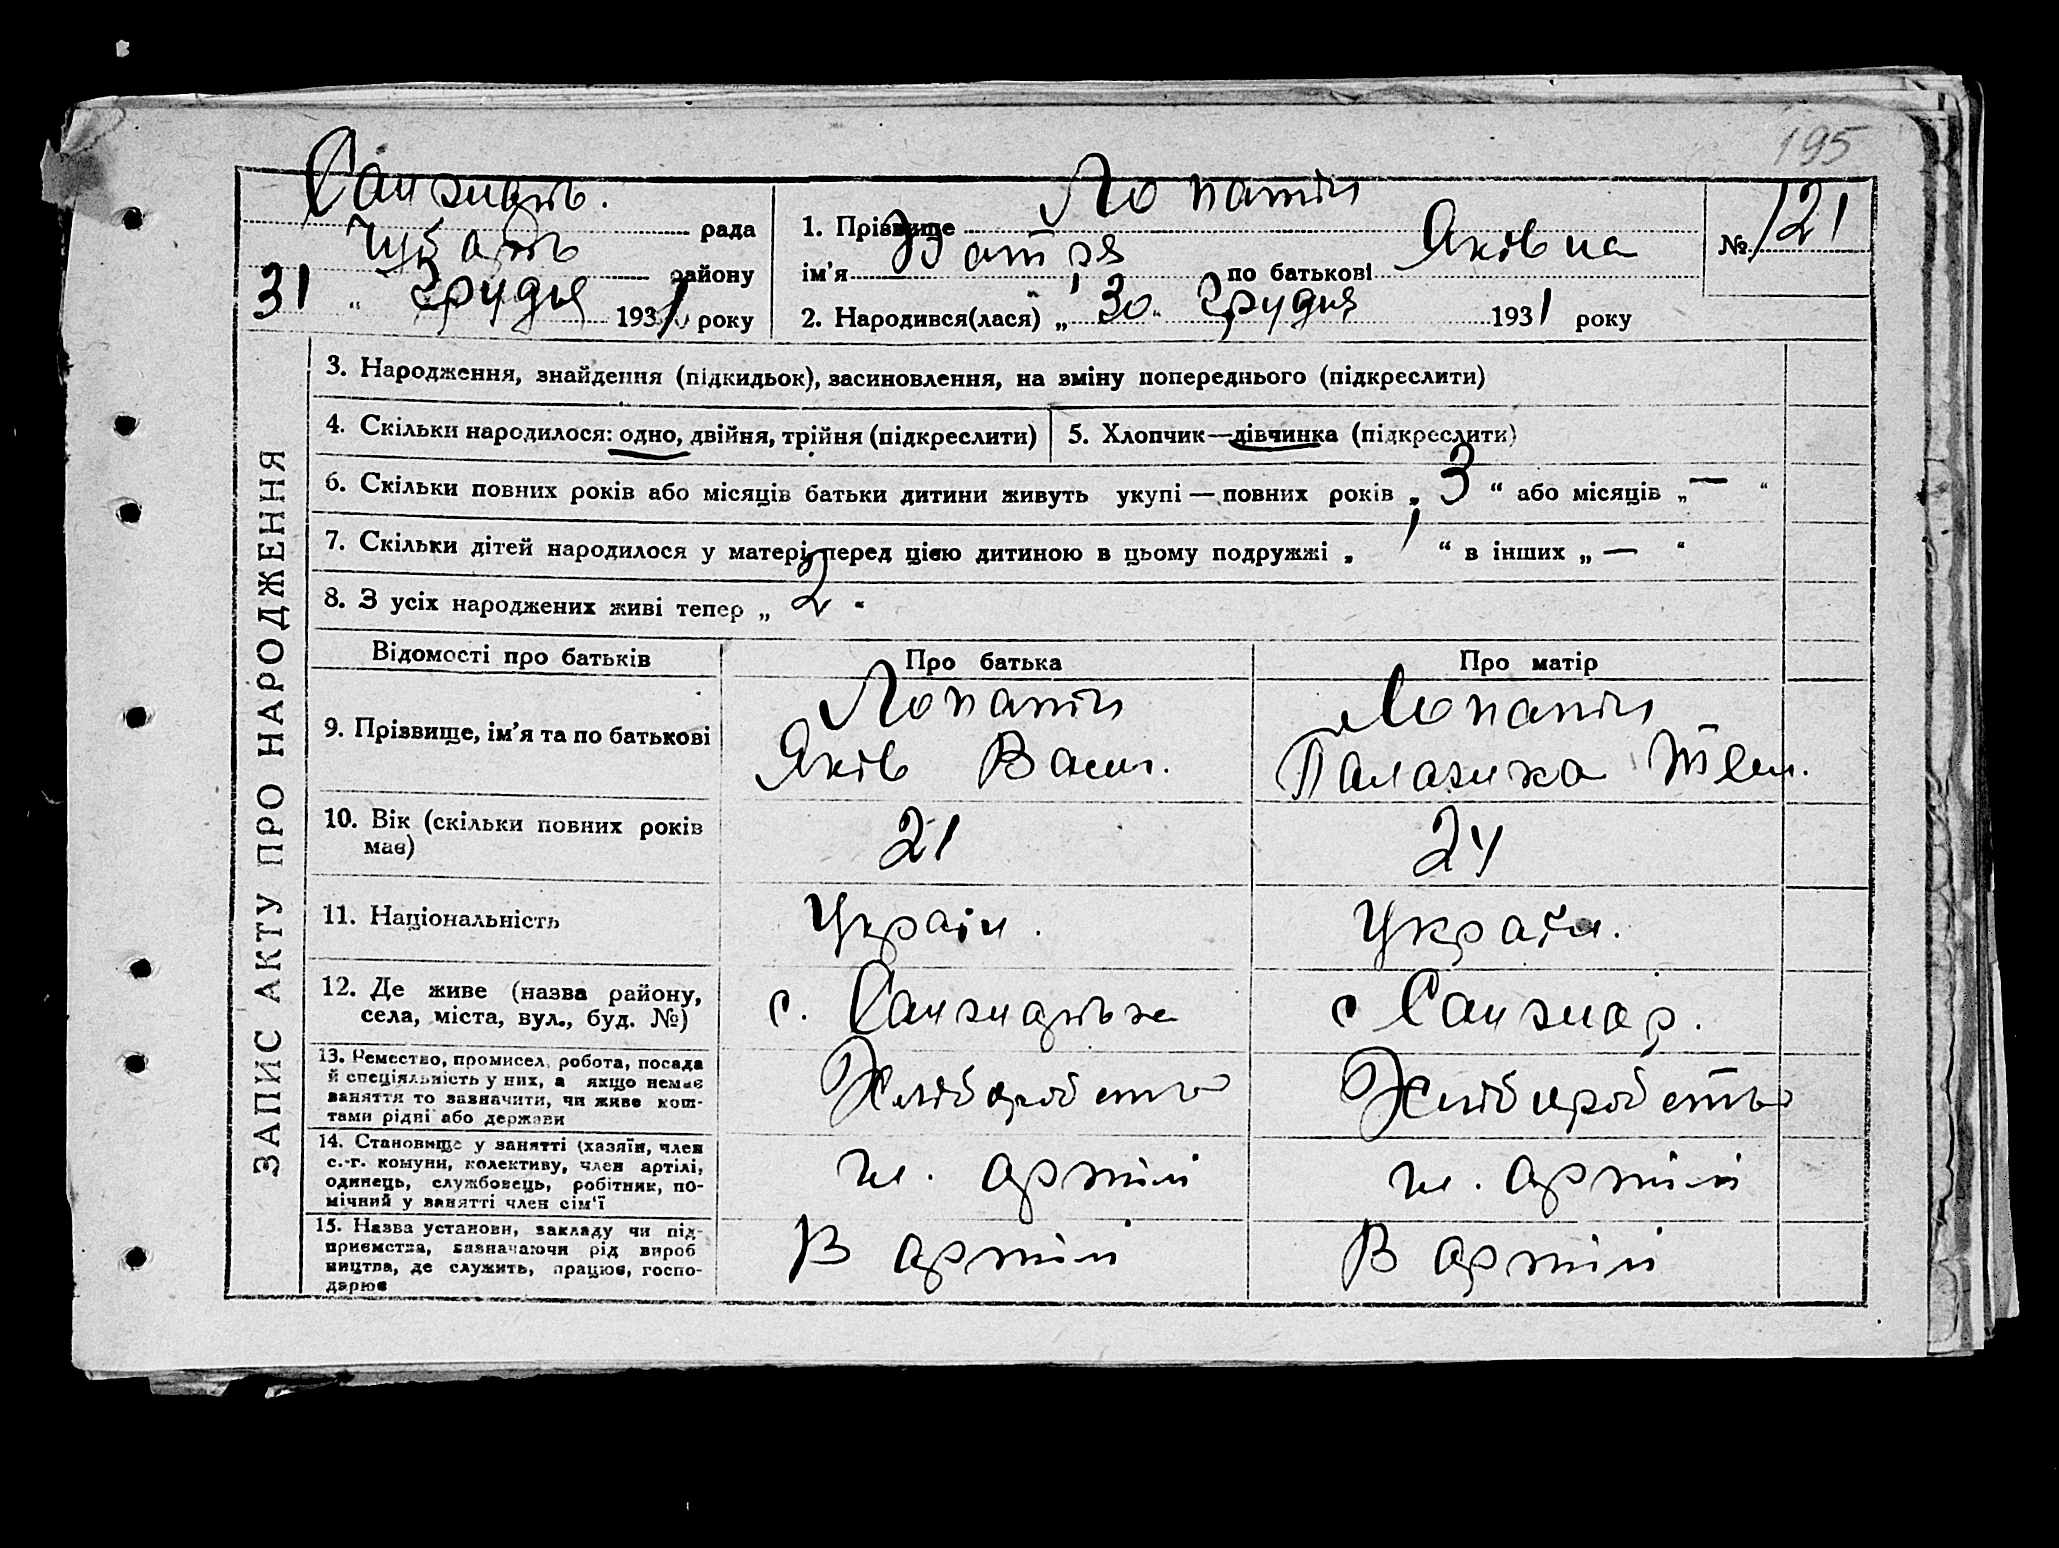 195
Санжар.
рада
1. Прізвище Лопатін
№ 121
Чубар
району
ім’я
по батькові Яківна
31 “ Грудня 1931 року
2. Народився(лася) „ 30 “ Грудня 1931 року
ЗАПИС АКТУ ПРО НАРОДЖЕННЯ
3. Народження, знайдення (підкидьок), засиновлення, на зміну попереднього (підкреслити)
4. Скільки народилося: одно, двійня, трійня (підкреслити)
5. Хлопчик—дівчинка (підкреслити)
6. Скільки повних років або місяців батьки дитини живуть укупі — повних років „ 3 “ або місяців „ — “
7. Скільки дітей народилося у матері перед цією дитиною в цьому подружжі „ 1 “ в інших „ — “
8. З усіх народжених живі тепер „ 2 “
Відомості про батьків
Про батька
Про матір
9. Прізвище, ім’я та по батькові
Лопатін
Яків Васил.
Лопатін
Палажка
10. Вік (скільки повних років
має)
21
24
11. Національність
Украін.
Україн.
12. Де живе (назва району,
села, міста, вул., буд. №)
с. Санжарівка
с Санжар.
13. Ремество, промисел, робота, посада
й спеціяльність у них, а якщо немає
заняття то зазначити, чи живе кош-
тами рідні або держави
Хліборобство
Хліборобство
14. Становище у занятті (хазяїн, член
с.-г. комуни, колективу, член артілі,
одинець, службовець, робітник, по-
мічний у занятті член сім’ї
чл. артілі
чл. артілі
15. Назва установи, закладу чи під-
приємства, зазначаючи рід вироб
ництва, де служить, працює, госпо-
дарює
В артілі
В артілі